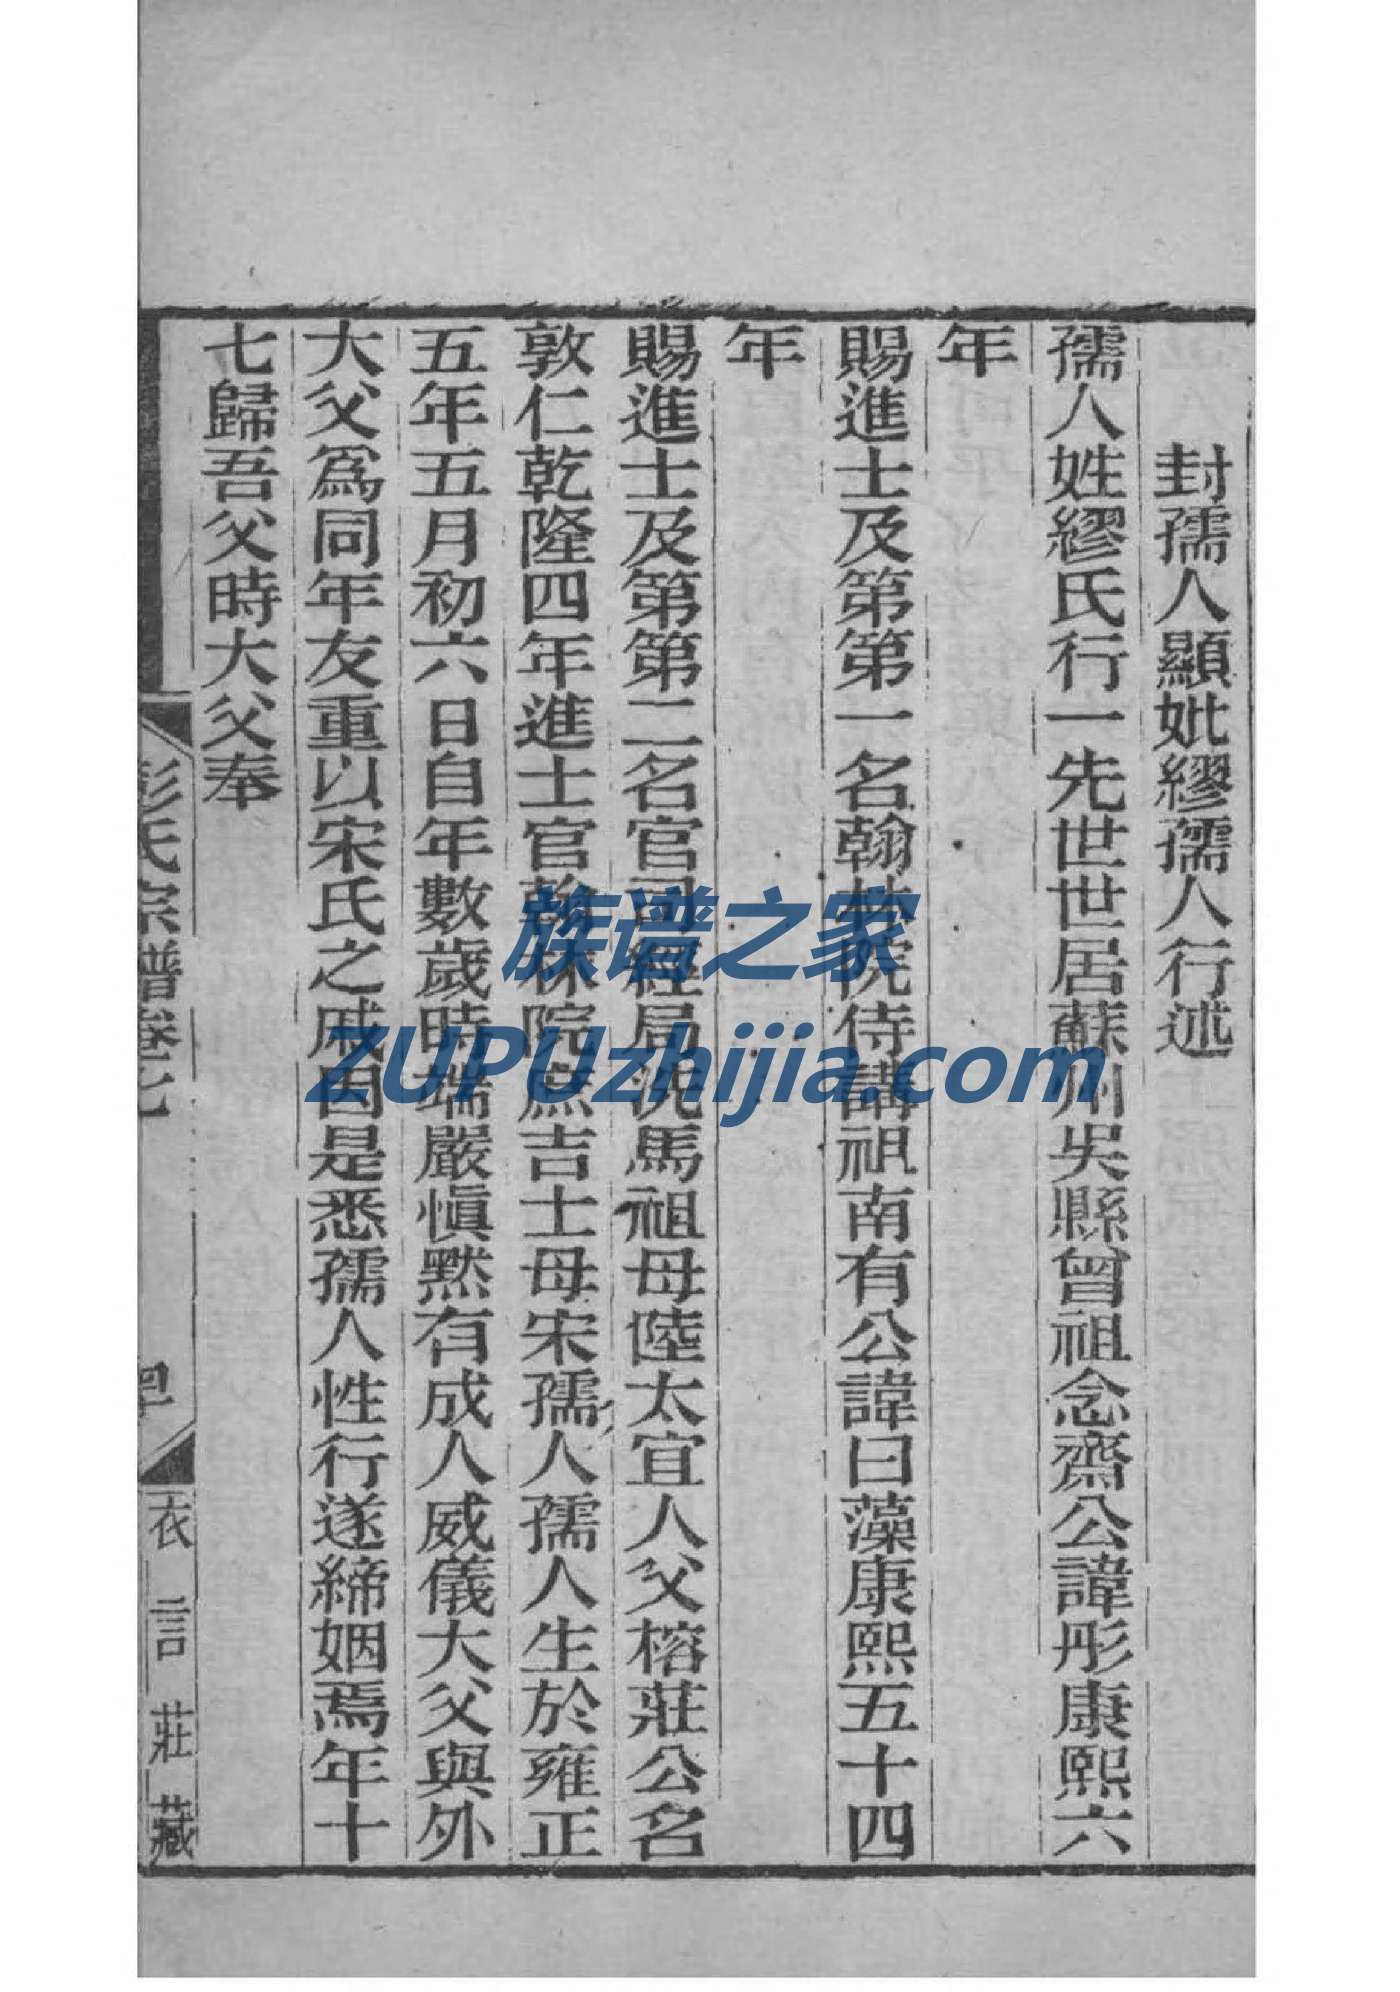 封孺人顯妣繆孺人行述
孺人姓繆氏行一先世世居蘇州吳縣曾祖念齋公諱彤康熙六
年
賜進士及第第一名翰林院侍講祖南有公諱曰藻康熙五十四
年
賜進士及第第二名官司經局洗馬祖母陸太宜人父榕莊公名
敦仁乾隆四年進士官翰林院庶吉士母宋孺人孺人生於雍正
五年五月初六日自年數歲時端嚴愼默有成人威儀大父與外
大父爲同年友重以宋氏之戚因是悉孺人性行遂締姻焉年十
七歸吾父時大父奉
彭氏宗譜卷七
衣言莊藏
族谱之家
ZUPUzhijia.com